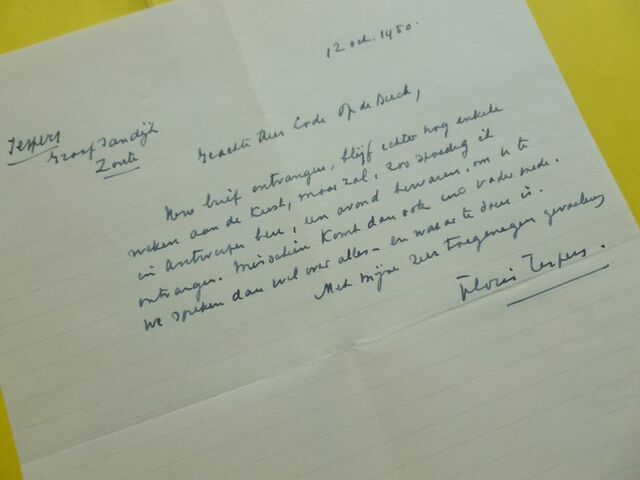 12 oct. 1950.
Jespers
Graaf Jansdijk
Zoute
Geachte Heer Lode Op de Beeck,
Uw brief ontvangen, blijf echter nog enkele
weken aan de Kust, maar zal, zoo spoedig ik
in Antwerpen ben, een avond bewaren, om u te
ontvangen. Misschien komt dan ook uw vader mede.
We spreken dan wel over alles – en wat er te doen is.
Met mijne zeer toegenegen gevoelens
Floris Jespers.